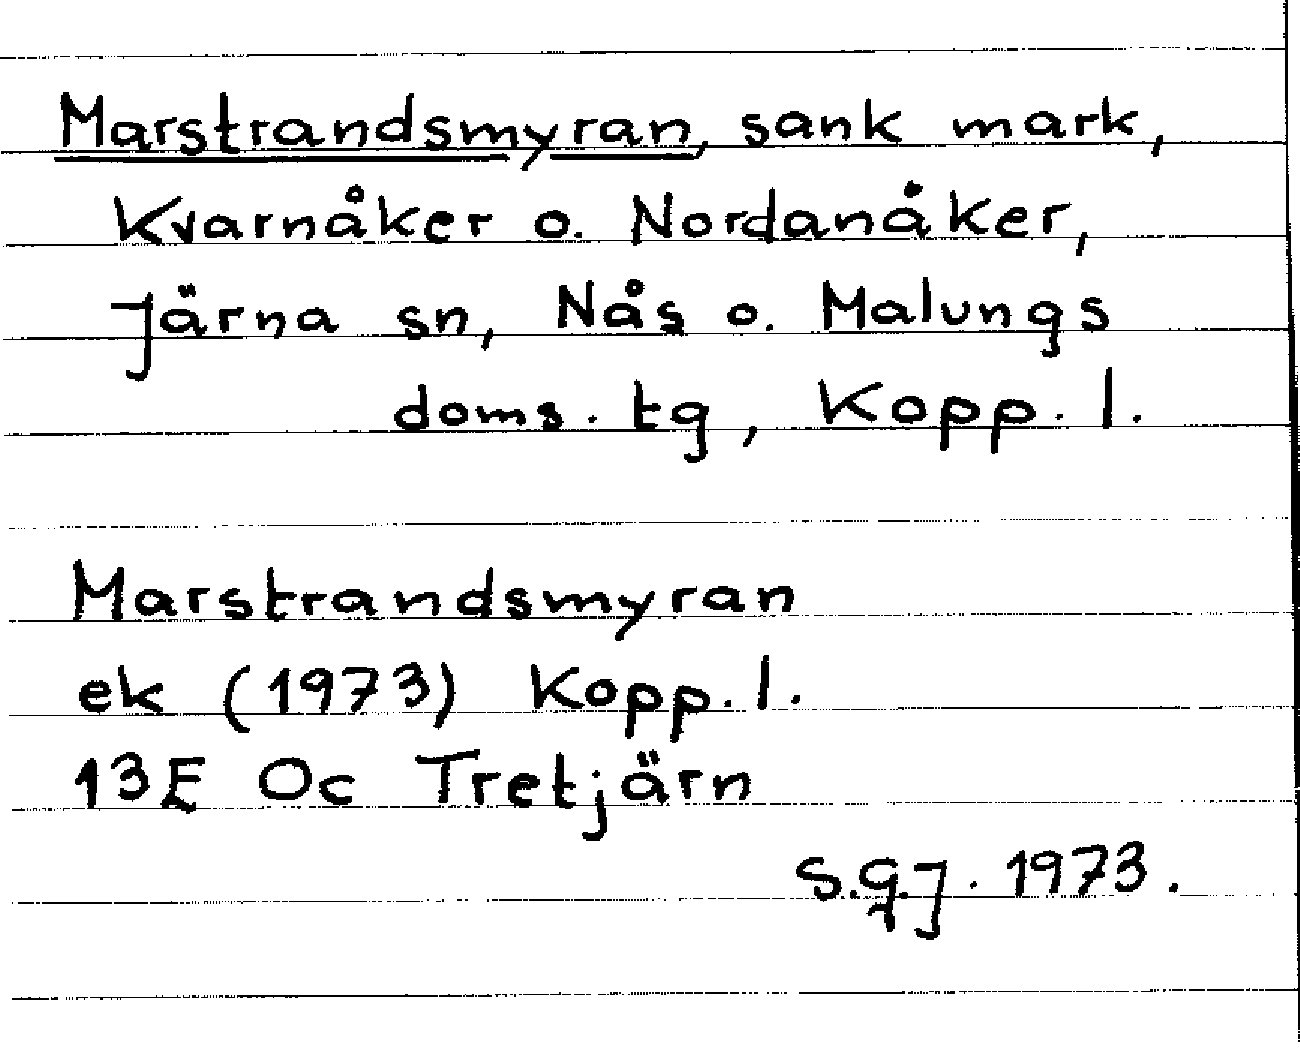 Marstrandsmyran, sank mark,
Kvarnåker o. Nordanåker,
Järna sn, Nås o. Malungs
doms. tg, Kopp. l.
Marstrandsmyran
ek (1973) Kopp. l.
13E Oc Tretjärn
S.G.J. 1973.